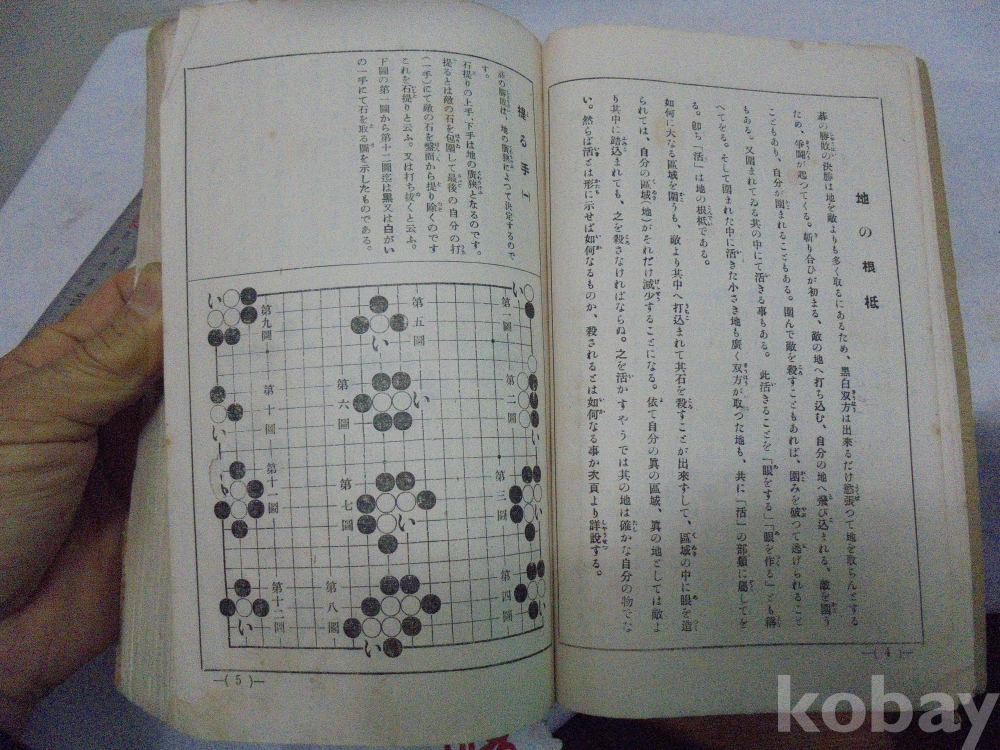 地の根柢
碁の勝敗の決勝は地を敵よりも多く取るにあるため、黒白双方は出来るだけ慾張つて地を取らんとする
ため、爭鬪が起つてくる。斬り合ひが初まる、敵の地へ打ち込む、自分の地へ飛び込まれる。敵を圍う
こともあり、自分が圍まれることもある。圍んで敵を殺すこともあれば、圍みを破つて逃げられること
もある。又圍まれてゐる其の中にて活きる事もある。此活きることを「眼をする」「眼を作る」とも稱
へてをる。そして圍まれた中に活きた小さき地も廣く双方が取つた地も、共に「活」の部類に屬してを
る。卽ち「活」は地の根柢である。
如何に大なる區域を圍うも、敵より其中へ打込まれて其石を殺すことが出來すして、區域の中に眼を造
られては、自分の區域(地)がそれだけ減少することになる。依て自分の眞の區域、眞の地としては敵よ
り其中に踏込まれても、之を殺さなければならぬ。之を活かすやうでは其の地は確かな自分の物でな
い。然らば活とは形に示せば如何なるものか、殺されるとは如何なる事か次頁より詳說する。
—( 4 )—
提る手(一)
碁の勝敗は、地の廣狹によつて決定するので
す。
石提りの上手、下手は地の廣狹となるのです。
提るとは敵の石を包圍して最後の自分の打
(一手)にて敵の石を盤面から提り除くのです
これを石提りと云ふ。又は打ち拔くと云ふ。
下圖の第一圖から第十二圖迄は黒又は白がい
の一手にて石を取る圖を示したものである。
第一圖
い
第二圖
い
第三圖
第四圖
い
第五圖
い
第六圖
い
第七圖
い
第八圖
い
第九圖
い
第十圖
い
第十一圖
い
第十二圖
い
—( 5 )—
kobay